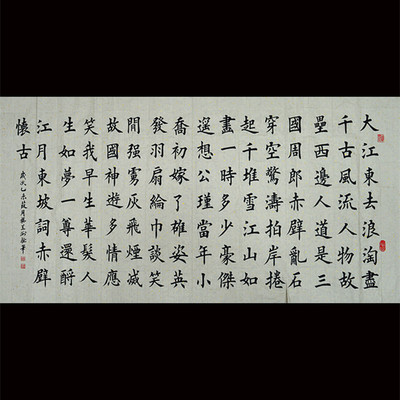 大江東去浪淘盡
千古風流人物故
壘西邊人道是三
國周郎赤壁亂石
穿空驚濤拍岸捲
起千堆雪江山如
畫一時多少豪傑
遙想公瑾當年小
喬初嫁了雄姿英
發羽扇綸巾談笑
間强虜灰飛煙滅
故國神遊多情應
笑我早生華髮人
生如夢一尊還酹
江月東坡詞赤壁
懷古
歲次乙未